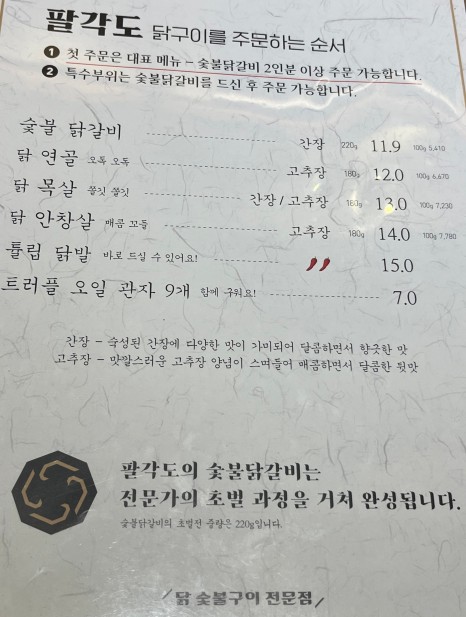 팔각도 닭구이를 주문하는 순서
1 첫 주문은 대표 메뉴 – 숯불닭갈비 2인분 이상 주문 가능합니다.
2 특수부위는 숯불닭갈비를 드신 후 주문 가능합니다.
숯불 닭갈비 간장 220g 11.9 100g 5,410
닭 연골 오독 오독 고추장 180g 12.0 100g 6,670
닭 목살 쫄깃 쫄깃 간장/고추장 180g 13.0 100g 7,230
닭 안창살 매콤 꼬들 고추장 180g 14.0 100g 7,780
튤립 닭발 바로 드실 수 있어요! 15.0
트러플 오일 관자 9개 함께 구워요! 7.0
간장 – 숙성된 간장에 다양한 맛이 가미되어 달콤하면서 향긋한 맛
고추장 – 맛깔스러운 고추장 양념이 스며들어 매콤하면서 달큼한 뒷맛
팔각도의 숯불닭갈비는
전문가의 초벌 과정을 거쳐 완성됩니다.
숯불닭갈비의 초벌전 중량은 220g입니다.
/ 닭 숯불구이 전문점 /